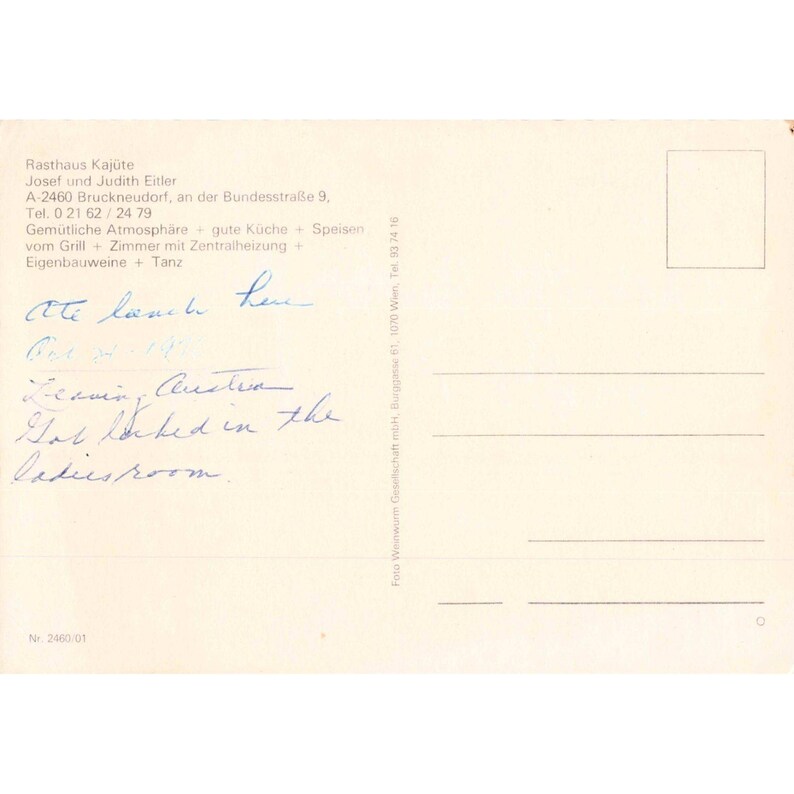 Rasthaus Kajüte
Josef und Judith Eitler
A-2460 Bruckneudorf, an der Bundesstraße 9,
Tel. 0 21 62 / 24 79
Gemütliche Atmosphäre + gute Küche + Speisen
vom Grill + Zimmer mit Zentralheizung +
Eigenbauweine + Tanz
Ate lunch here
Oct
Leaving Austria
Got locked in the
ladies room.
Nr. 2460/01
Foto Weinwurm Gesellschaft mbH, Burggasse 61, 1070 Wien, Tel. 93 74 16